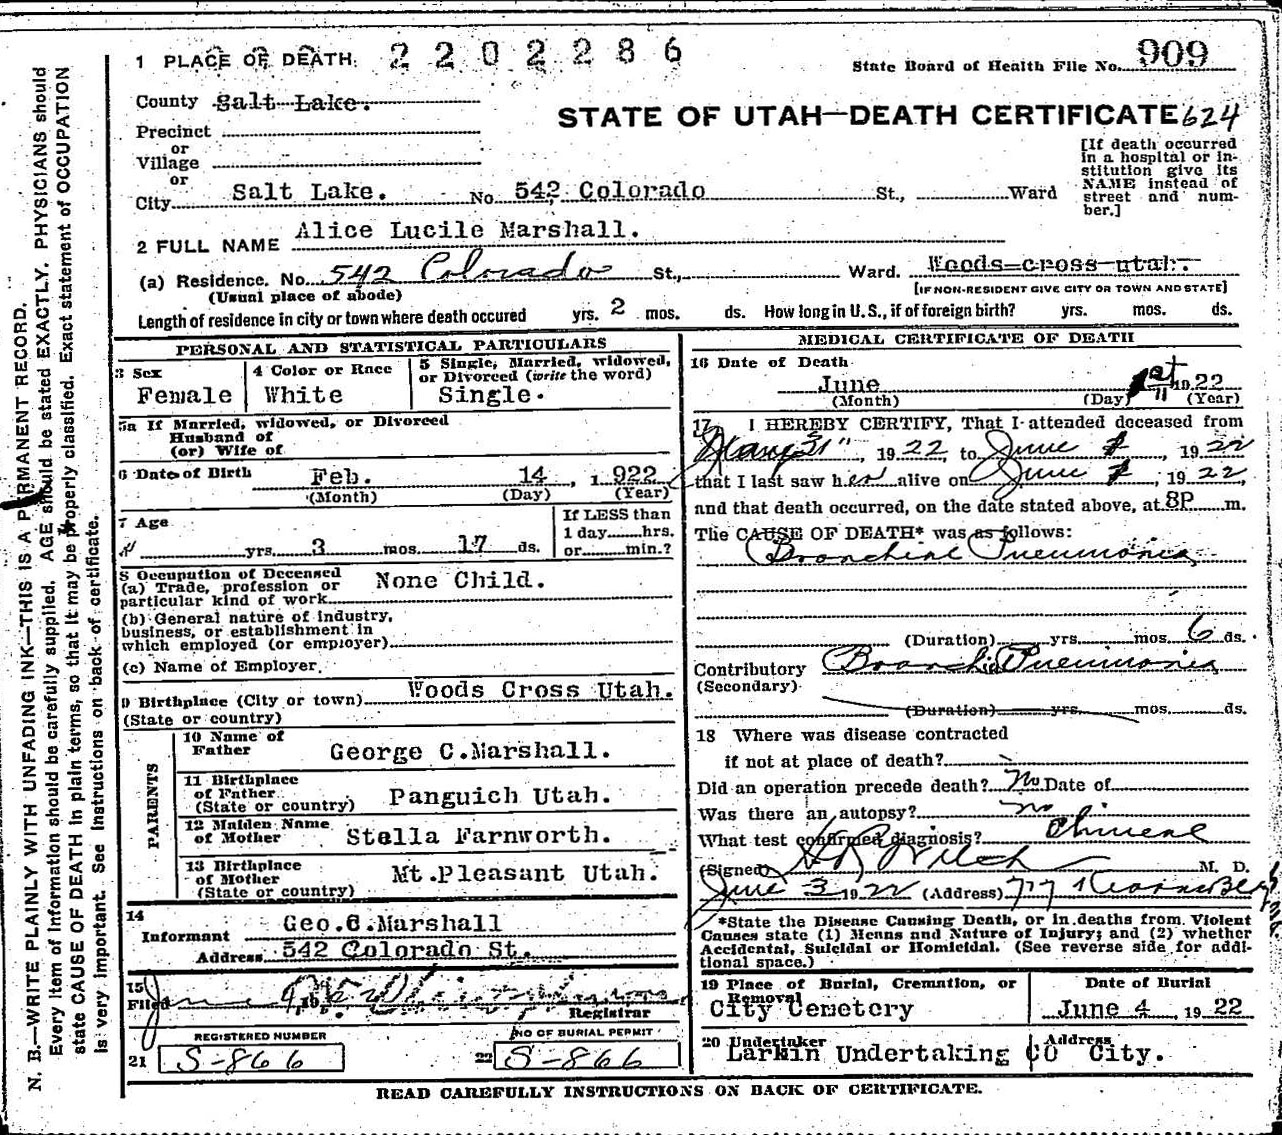 1 PLACE OF DEATH. 2202286
State Board of Health File No. 909
County Salt Lake.
STATE OF UTAH—DEATH CERTIFICATE 624
Precinct
or
Village
or
City Salt Lake. No. 542, Colorado St., Ward
[If death occurred in a hospital or institution give its NAME instead of street and number.]
2 FULL NAME Alice Lucile Marshall.
(a) Residence. No. 542 Colorado St., Ward. Woods-cross-utah.
(Usual place of abode) [IF NON-RESIDENT GIVE CITY OR TOWN AND STATE]
Length of residence in city or town where death occured yrs. 2 mos. ds. How long in U. S., if of foreign birth? yrs. mos. ds.
PERSONAL AND STATISTICAL PARTICULARS
3 Sex Female
4 Color or Race White
5 Single, Married, widowed, or Divorced (write the word) Single.
5a If Married, widowed, or Divorced
Husband of
(or) Wife of
6 Date of Birth Feb. 14, 1922
(Month) (Day) (Year)
7 Age yrs. 3 mos. 17 ds.
If LESS than
1 day hrs.
or min.?
8 Occupation of Deceased
(a) Trade, profession or
particular kind of work None Child.
(b) General nature of industry,
business, or establishment in
which employed (or employer)
(c) Name of Employer
9 Birthplace (City or town) Woods Cross Utah.
(State or country)
PARENTS
10 Name of Father George C.Marshall.
11 Birthplace of Father (State or country) Panguich Utah.
12 Maiden Name of Mother Stella Farnworth.
13 Birthplace of Mother (State or country) Mt.Pleasant Utah.
14 Informant Geo.C.Marshall
Address 542 Colorado St.
15 Filed June
Registrar
REGISTERED NUMBER
21 S-866
NO OF BURIAL PERMIT
22 S-866
MEDICAL CERTIFICATE OF DEATH
16 Date of Death
June 1st 1922
(Month) (Day) (Year)
17 I HEREBY CERTIFY, That I attended deceased from
May 31", 1922, to June 1, 1922
that I last saw her alive on June 1, 1922,
and that death occurred, on the date stated above, at 8P m.
The CAUSE OF DEATH* was as follows:
Bronchial Pneumonia
(Duration) yrs. mos. 6 ds.
Contributory Bronchial Pneumonia
(Secondary)
(Duration) yrs. mos. ds.
18 Where was disease contracted
if not at place of death?
Did an operation precede death? No Date of
Was there an autopsy? no
What test confirmed diagnosis? Clinical
(Signed) M. D.
June 3 1922 (Address) 717 Kearns Bldg
*State the Disease Causing Death, or in deaths from Violent
Causes state (1) Means and Nature of Injury; and (2) whether
Accidental, Suicidal or Homicidal. (See reverse side for addi-
tional space.)
19 Place of Burial, Cremation, or Removal City Cemetery
Date of Burial June 4, 1922
20 Undertaker Larkin Undertaking CO
Address City.
READ CAREFULLY INSTRUCTIONS ON BACK OF CERTIFICATE.
N. B.—WRITE PLAINLY WITH UNFADING INK—THIS IS A PERMANENT RECORD.
Every item of information should be carefully supplied. AGE should be stated EXACTLY. PHYSICIANS should
state CAUSE OF DEATH in plain terms, so that it may be properly classified. Exact statement of OCCUPATION
is very important. See instructions on back of certificate.